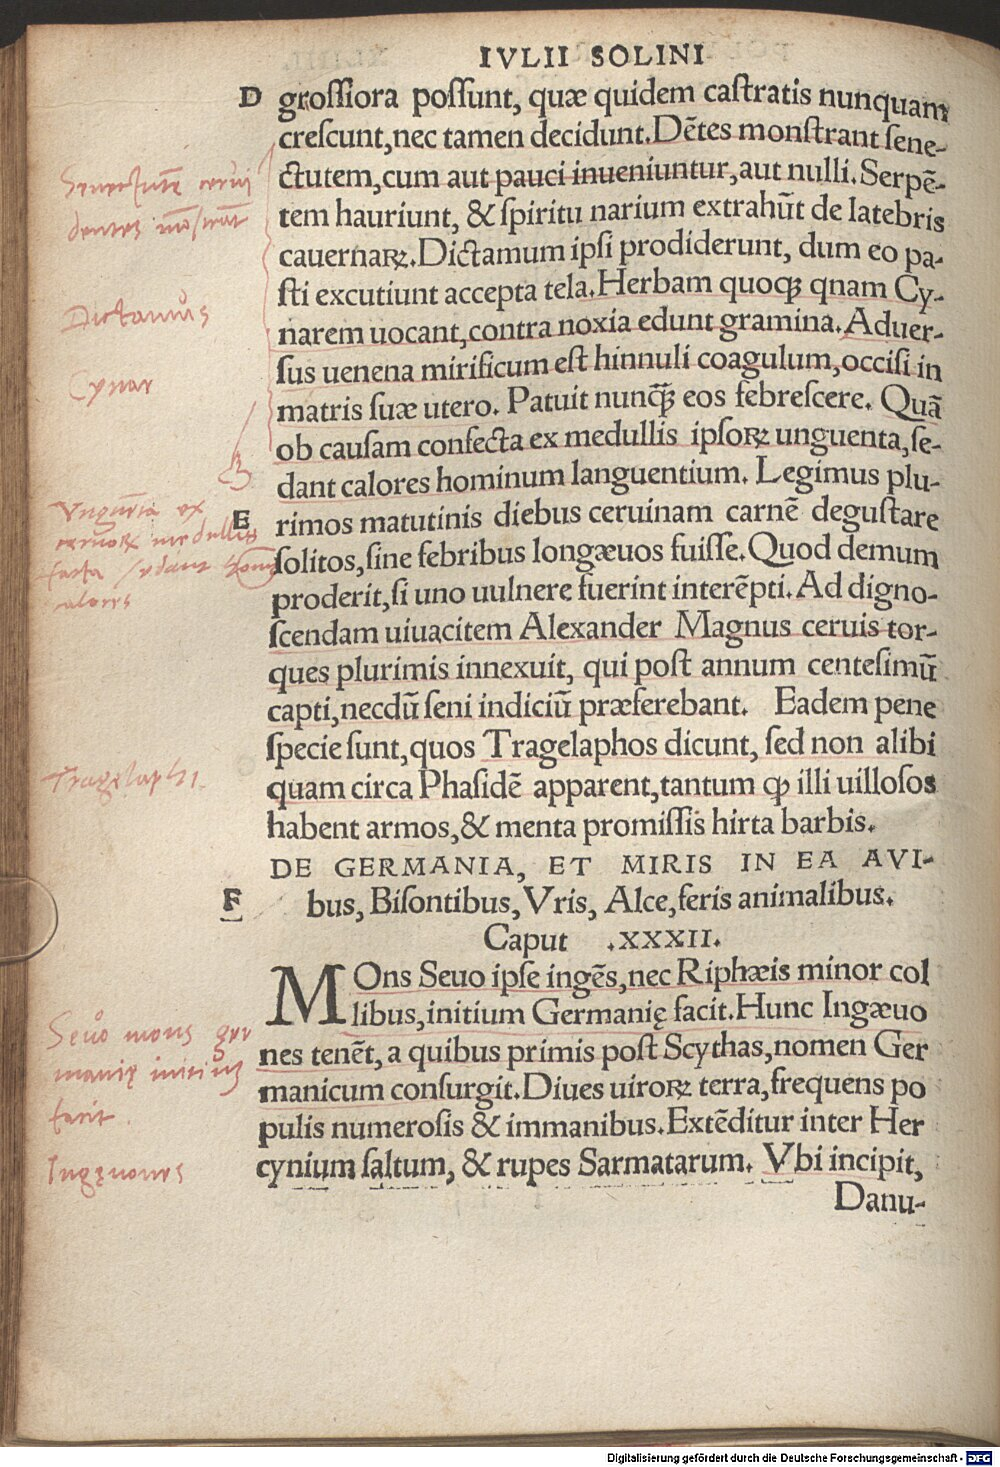 IVLII SOLINI
D groſſiora poſſunt, quæ quidem caſtratis nunquam
creſcunt, nec tamen decidunt. Dẽtes monſtrant ſene-
ctutem, cum aut pauci inueniuntur, aut nulli. Serpẽ-
tem hauriunt, & ſpiritu narium extrahũt de latebris
cauernaꝝ. Dictamum ipſi prodiderunt, dum eo pa-
ſti excutiunt accepta tela. Herbam quoqꝫ qnam Cy-
narem uocant, contra noxia edunt gramina. Aduer-
ſus uenena mirificum eſt hinnuli coagulum, occiſi in
matris ſuæ utero. Patuit nunq̃ꝫ eos febreſcere. Quã
ob cauſam confecta ex medullis ipſoꝝ unguenta, ſe-
dant calores hominum languentium. Legimus plu-
E rimos matutinis diebus ceruinam carnẽ deguſtare
ſolitos, ſine febribus longæuos fuiſſe. Quod demum
proderit, ſi uno uulnere fuerint interẽpti. Ad digno-
ſcendam uiuacitem Alexander Magnus ceruis tor-
ques plurimis innexuit, qui poſt annum centeſimũ
capti, necdũ ſeni indiciũ præferebant. Eadem pene
ſpecie ſunt, quos Tragelaphos dicunt, ſed non alibi
quam circa Phaſidẽ apparent, tantum ꝙ illi uilloſos
habent armos, & menta promiſſis hirta barbis.
DE GERMANIA, ET MIRIS IN EA AVI-
F bus, Biſontibus, Vris, Alce, feris animalibus.
Caput .XXXII.
MOns Seuo ipſe ingẽs, nec Riphæis minor col
libus, initium Germanię facit. Hunc Ingæuo
nes tenẽt, a quibus primis poſt Scythas, nomen Ger
manicum conſurgit. Diues uiroꝝ terra, frequens po
pulis numeroſis & immanibus. Extẽditur inter Her
cynium ſaltum, & rupes Sarmatarum. Vbi incipit,
Danu-
Senectutẽ cerui
dentes mõſtrat
Dictamus
Cynar
Vnguẽta ex
ceruoꝝ medullis
facta ſedant
calores
Tragelaphi
Seuo mons ger
manię initiũ
facit.
Ingęuones
Digitalisierung gefördert durch die Deutsche Forschungsgemeinschaft - DFG